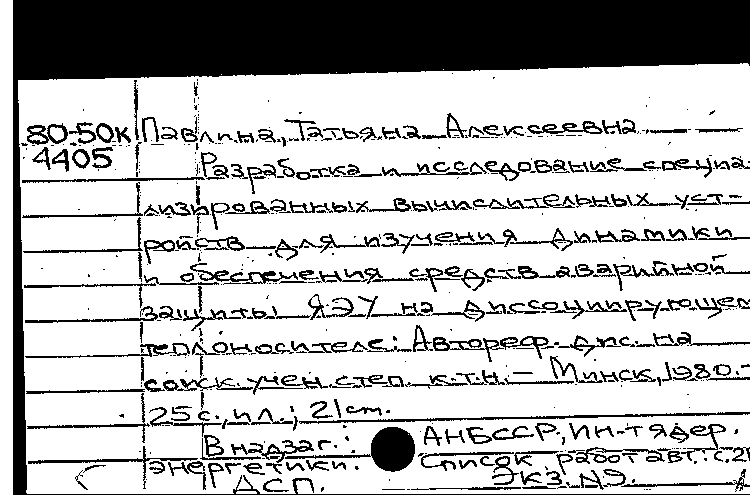 80-50к Павлина, Татьяна Алексеевна
4405 Разработка и исследование специа-
лизированных вычислительных уст-
ройств для изучения динамики
и обеспечения средств аварийной
защиты ЯЭУ на диссоциирующем
теплоносителе: Автореф. дис. на
соиск. учен. степ. к.т.н. – Минск, 1980. –
25 с., ил.; 21 см.
В надзаг.: АН БССР, Ин-т ядер.
энергетики. Список работ авт.: с. 2
ДСП. Экз. N9.